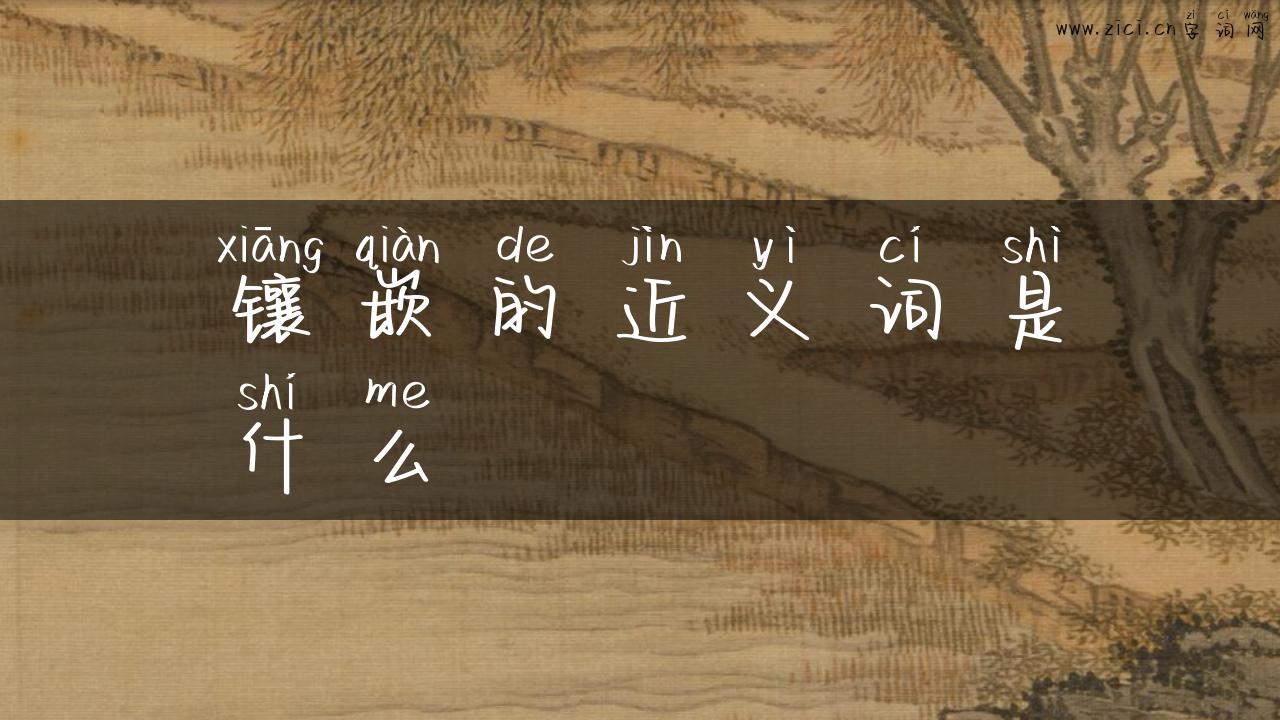 zì cí wǎng
www.zici.cn字词网
xiāng qiàn de jìn yì cí shì
镶嵌的近义词是
shí me
什么